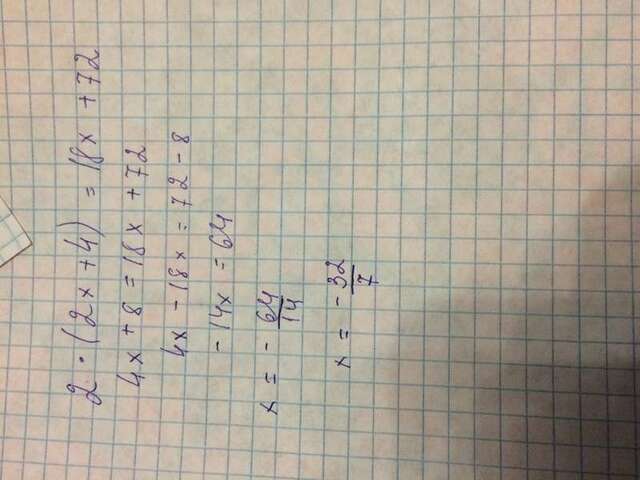 2 · (2x + 4) = 18x + 72
4x + 8 = 18x + 72
4x - 18x = 72 - 8
- 14x = 64
x = - 64/14
x = - 32/7